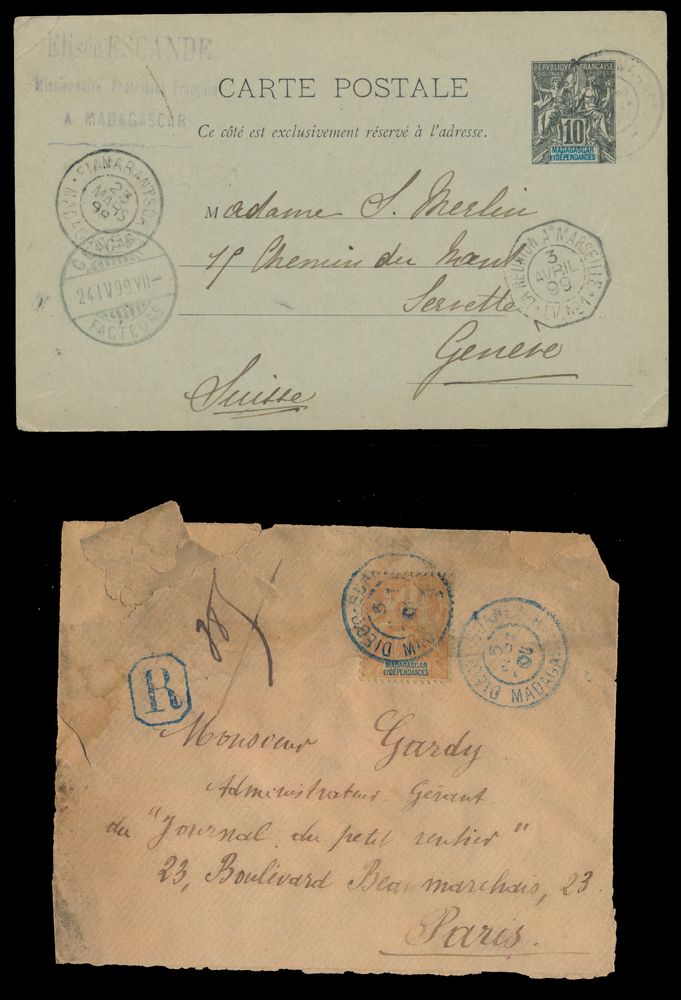 Elisée ESCANDE
Missionnaire Protestant Français
A MADAGASCAR
CARTE POSTALE
Ce côté est exclusivement réservé à l'adresse.
RÉPUBLIQUE FRANÇAISE
COLONIES POSTES
10
MADAGASCAR
ET DÉPENDANCES
FIANARANTSOA
23
MARS
99
MADAGASCAR
24 IV 99 VII
FACTEURS
LA REUNION A MARSEILLE
3
AVRIL
99
L.V. N°1
Madame S. Merlin
Chemin du
Servette
Genève
Suisse
DIEGO-SUAREZ
MADAGASCAR
ET DÉPENDANCES
DIEGO-SUAREZ
MADAGASCAR
R
Monsieur Gardy
Administrateur-Gérant
du "Journal du petit rentier"
23, Boulevard Beaumarchais, 23
Paris.